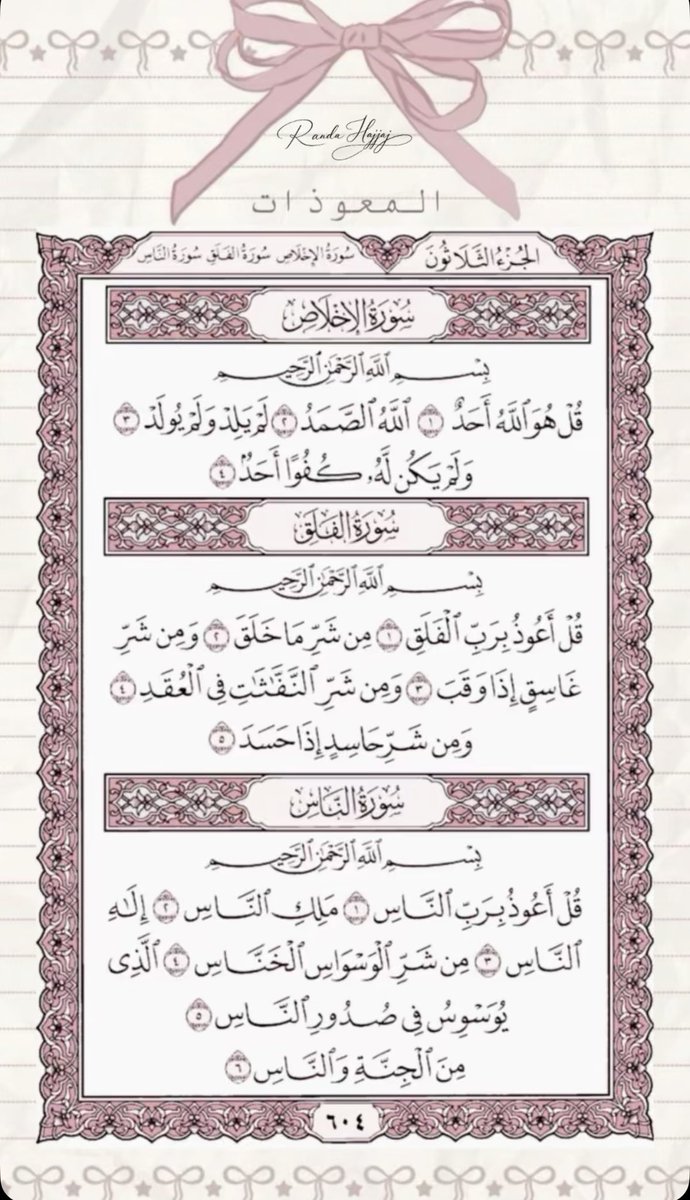 Randa Hajjaj
المعوذات
الجُزْءُ الثَّلَاثُونَ سُورَةُ الإِخْلَاصِ سُورَةُ الفَلَقِ سُورَةُ النَّاسِ
سُورَةُ الإِخْلَاصِ
بِسْمِ ٱللَّهِ ٱلرَّحْمَٰنِ ٱلرَّحِيمِ
قُلْ هُوَ ٱللَّهُ أَحَدٌ ١ ٱللَّهُ ٱلصَّمَدُ ٢ لَمْ يَلِدْ وَلَمْ يُولَدْ ٣
وَلَمْ يَكُن لَّهُۥ كُفُوًا أَحَدٌۢ ٤
سُورَةُ الفَلَقِ
بِسْمِ ٱللَّهِ ٱلرَّحْمَٰنِ ٱلرَّحِيمِ
قُلْ أَعُوذُ بِرَبِّ ٱلْفَلَقِ ١ مِن شَرِّ مَا خَلَقَ ٢ وَمِن شَرِّ
غَاسِقٍ إِذَا وَقَبَ ٣ وَمِن شَرِّ ٱلنَّفَّٰثَٰتِ فِى ٱلْعُقَدِ ٤
وَمِن شَرِّ حَاسِدٍ إِذَا حَسَدَ ٥
سُورَةُ النَّاسِ
بِسْمِ ٱللَّهِ ٱلرَّحْمَٰنِ ٱلرَّحِيمِ
قُلْ أَعُوذُ بِرَبِّ ٱلنَّاسِ ١ مَلِكِ ٱلنَّاسِ ٢ إِلَٰهِ
ٱلنَّاسِ ٣ مِن شَرِّ ٱلْوَسْوَاسِ ٱلْخَنَّاسِ ٤ ٱلَّذِى
يُوَسْوِسُ فِى صُدُورِ ٱلنَّاسِ ٥
مِنَ ٱلْجِنَّةِ وَٱلنَّاسِ ٦
٦٠٤